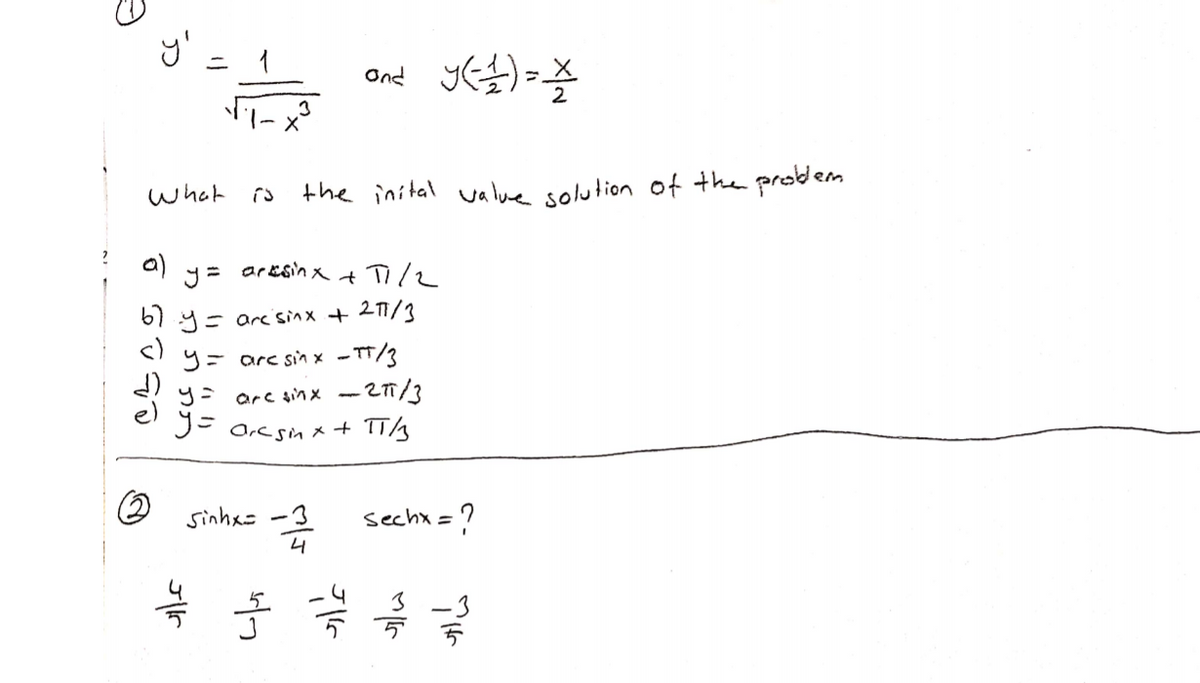 ①
y' = 1/√1-x³ and y(-1/2) = x/2
what is the inital value solution of the problem
a) y = arcsinx + π/2
b) y = arcsinx + 2π/3
c) y = arcsinx - π/3
d) y = arcsinx - 2π/3
e) y = arcsinx + π/3
② sinhx = -3/4 sechx = ?
4/5 5/3 -4/5 3/5 -3/5